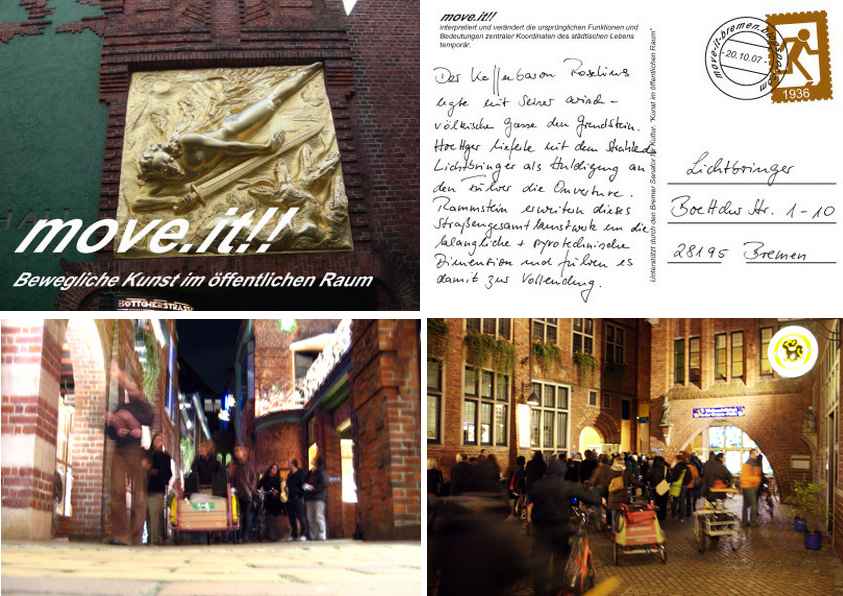 move.it!!
Bewegliche Kunst im öffentlichen Raum
BÖTTCHERSTRASSE
move.it!!
interpretiert und verändert die ursprünglichen Funktionen und
Bedeutungen zentraler Koordinaten des städtischen Lebens
temporär.
Der Kaffeebaron Roselius
legte mit seiner arisch-
völkischen Gasse den Grundstein.
Hoettger lieferte mit dem Strahlend
Lichtbringer als Huldigung an
den Führer die Ouverture.
Rammstein erweitern dieses
Straßengesamtkunstwerk um die
klangliche + pyrotechnische
Dimension und führen es
damit zur Vollendung.
Unterstützt durch den Bremer Senator für Kultur. "Kunst im öffentlichen Raum"
move-it-bremen.blogspot.com
-20.10.07-
1936
Lichtbringer
Boettcher Str. 1-10
28195 Bremen